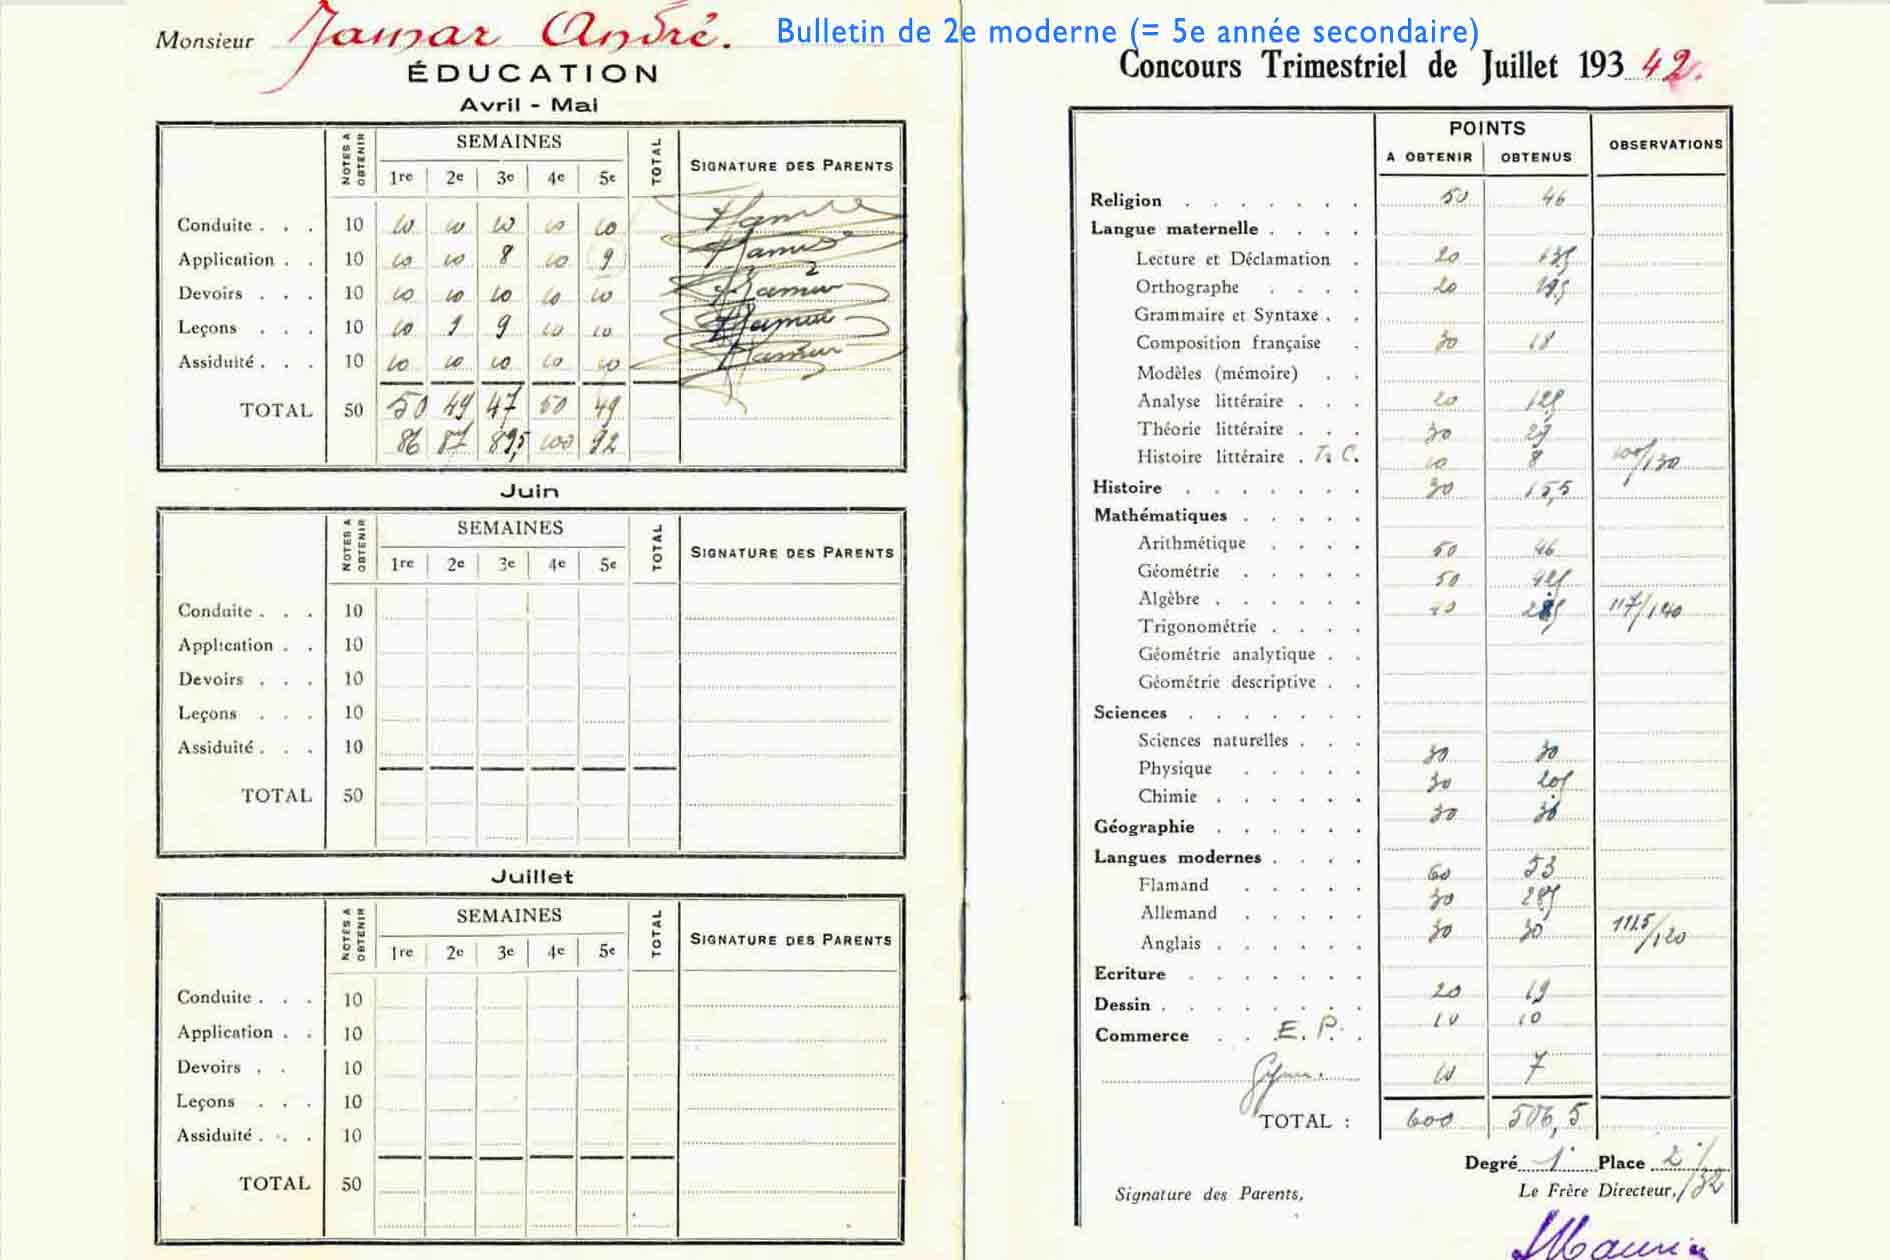 Bulletin de 2e moderne (= 5e année secondaire)
Monsieur Jamar André.
ÉDUCATION
Avril - Mai
NOTES A OBTENIR SEMAINES TOTAL SIGNATURE DES PARENTS
1re 2e 3e 4e 5e
Conduite . . . 10 10 10 10 10 10
Application . . 10 10 10 8 10 9
Devoirs . . . 10 10 10 10 10 10
Leçons . . . 10 10 9 9 10 10
Assiduité . . . 10 10 10 10 10 10
TOTAL 50 50 49 47 50 49
86 87 89,5 100 92
Juin
NOTES A OBTENIR SEMAINES TOTAL SIGNATURE DES PARENTS
1re 2e 3e 4e 5e
Conduite . . . 10
Application . . 10
Devoirs . . . 10
Leçons . . . 10
Assiduité . . . 10
TOTAL 50
Juillet
NOTES A OBTENIR SEMAINES TOTAL SIGNATURE DES PARENTS
1re 2e 3e 4e 5e
Conduite . . . 10
Application . . 10
Devoirs . . 10
Leçons . . . 10
Assiduité . . . 10
TOTAL 50
Concours Trimestriel de Juillet 193 42.
POINTS OBSERVATIONS
A OBTENIR OBTENUS
Religion . . . . . . . 50 46
Langue maternelle . . . .
Lecture et Déclamation . 20 13,5
Orthographe . . . . 20 19,5
Grammaire et Syntaxe . .
Composition française . 30 18
Modèles (mémoire) . .
Analyse littéraire . . . 20 12,5
Théorie littéraire . . . 30 27
Histoire littéraire . T. C. 10 8 /130
Histoire . . . . . . . 30 15,5
Mathématiques . . . . .
Arithmétique . . . . 50 46
Géométrie . . . . . 50 42,5
Algèbre . . . . . . 40 28,5 117/140
Trigonométrie . . . .
Géométrie analytique . .
Géométrie descriptive . .
Sciences . . . . . . .
Sciences naturelles . . . 30 30
Physique . . . . . 30 20,5
Chimie . . . . . . 30 30
Géographie . . . . . .
Langues modernes . . . . 60 53
Flamand . . . . . 30 28,5
Allemand . . . . . 30 30 111.5/120
Anglais . . . . . .
Ecriture . . . . . . . 20 19
Dessin . . . . . . . . 10 10
Commerce . . E. P. .
Gym. 10 7
TOTAL : 600 506,5
Degré 1 Place 2 /32
Signature des Parents, Le Frère Directeur,